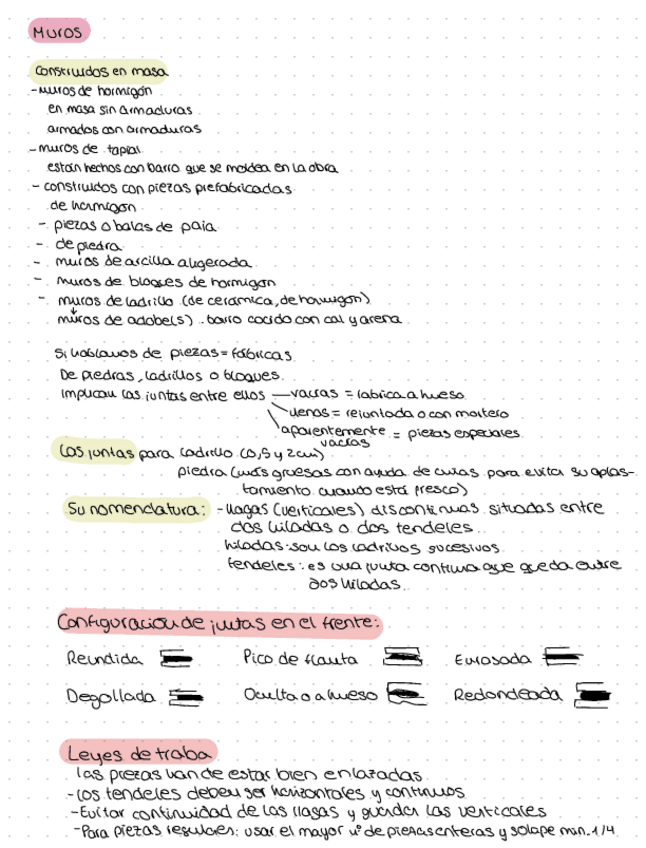 Muros
Construidos en masa
- Muros de hormigón
en masa sin armaduras
armados con armaduras
- Muros de tapial
están hechos con barro que se moldea en la obra
- construidos con piezas prefabricadas
de hormigón
- piezas o balas de paja
- de piedra
- muros de arcilla aligerada
- muros de bloques de hormigón
- muros de ladrillo (de cerámica, de hormigón)
muros de adobe(s) → barro cocido con cal y arena
Si hablamos de piezas = fábricas
De piedras, ladrillos o bloques
Implican las juntas entre ellos — vacías = fabrica a hueso
llenas = rejuntada o con mortero
aparentemente vacías = piezas especiales
Las juntas para ladrillo (0,5 y 2cm)
piedra (más gruesas con ayuda de cuñas para evitar su aplas-
tamiento cuando está fresco)
Su nomenclatura: - Llagas (verticales) discontinuas situadas entre
dos hiladas o dos tendeles
hiladas: son los ladrillos sucesivos
tendeles: es una junta continua que queda entre
dos hiladas
Configuración de juntas en el frente:
Reundida Pico de flauta Enrosada
Degollada Oculta o a hueso Redondeada
Leyes de traba
las piezas han de estar bien enlazadas
- Los tendeles deben ser horizontales y continuos
- Evitar continuidad de las llagas y guardar las verticales
- Para piezas regulares: usar el mayor nº de piezas enteras y solape mín. 1/4